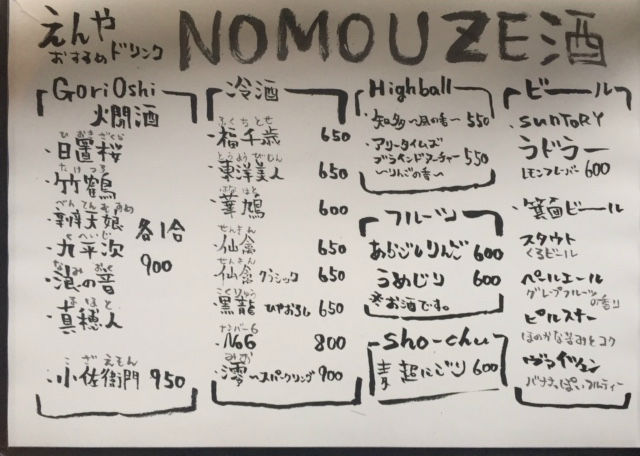 えんや
おすすめドリンク
NOMOUZE酒
GoriOshi
燗酒
ひおきざくら
・日置桜
たけつる
・竹鶴
べんてんむすめ
・辨天娘
くへいじ
・九平次
なみのおと
・浪の音
まほと
・真穂人
各1合
900
こざえもん
・小佐衛門 950
冷酒
ふくちとせ
・福千歳 650
とうようびじん
・東洋美人 650
はなはと
・華鳩 600
せんねん
・仙念 650
せんねん
・仙念 クラシック 650
こくりゅう
・黒龍 ひやおろし 650
ナンバー6
・No6 800
みお
・澪〜スパークリング 900
Highball
・知多〜風の香〜 550
・アーリータイムズ
ブラインドアーチャー 550
〜りんごの香〜
フルーツ
あらごしりんご 600
うめじり 600
※お酒です。
sho-chu
麦 超にごり 600
ビール
・SUNTORY
ラドラー
レモンフレーバー 600
・箕面ビール
スタウト
くろビール
ペールエール
グレープフルーツ
の香り
ピルスナー
ほのかな苦みとコク
ヴァイツェン
バナナっぽいフルーティー